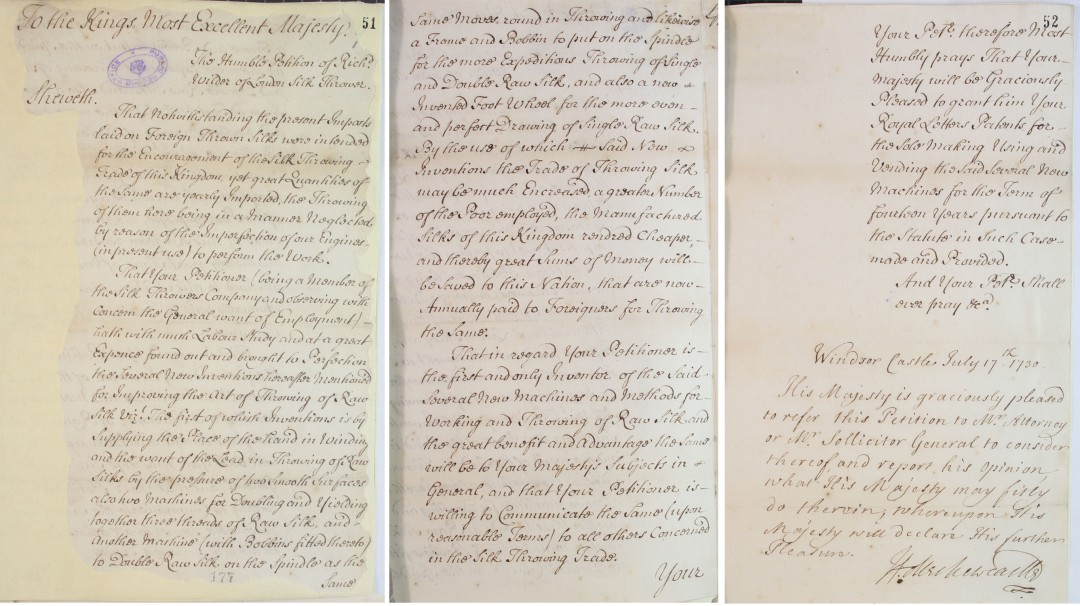 To the Kings Most Excellent Majesty.
51
The Humble Petition of Richd.
Wilder of London Silk Thrower.
Sheweth.
That Notwithstanding the present Imposts
laid on Foreign Thrown Silks were intended
for the Encouragement of the Silk Throwing
Trade of this Kingdom, yet great Quantities of
the Same are yearly Imported, the Throwing
of them here being in a Manner Neglected
by reason of the Imperfection of our Engines
(in present use) to perform the Work.
That Your Petitioner (being a Member of
the Silk Throwers Company and observing with
Concern the General want of Employment)
hath with much Labour Study and at a great
Expence found out and brought to Perfection
the Several New Inventions hereafter Mentioned
for Improving the Art of Throwing of Raw
Silk Vizt. The first of which Inventions is by
Supplying the Place of the hand in Winding
and the want of the Lead in Throwing of Raw
Silks by the pressure of two Smooth Surfaces
also two Machines for Doubling and Yielding
together three threads of Raw Silk, and
Another Machine (with Bobbins fitted thereto)
to Double Raw Silk on the Spindle as the
Same
177
Same Moves round in Throwing and likewise
a Frame and Bobbin to put on the Spindle
for the more Expeditious Throwing of Single
and Double Raw Silk, and also a new
Invented Foot Wheel for the more even
and perfect Drawing of Single Raw Silk.
By the use of which Said New
Inventions the Trade of Throwing Silk
may be much Encreased a greater Number
of the Poor employed, the Manufactured
Silks of this Kingdom rendred Cheaper,
and thereby great Sums of Money will
be Saved to this Nation, that are now
Annually paid to Foreigners for Throwing
the Same.
That in regard Your Petitioner is
the first and only Inventor of the Said
Several New Machines and Methods for
Working and Throwing of Raw Silk and
the great benefit and Advantage the Same
will be to Your Majesty's Subjects in
General, and that Your Petitioner is
willing to Communicate the Same (upon
reasonable Terms) to all others Concerned
in the Silk Throwing Trade.
Your
52
Your Petr. therefore Most
Humbly prays That Your
Majesty will be Graciously
Pleased to grant him Your
Royal Letters Patents for
the Sole Making Using and
Vending the Said Several New
Machines for the Term of
fourteen Years pursuant to
the Statute in Such Case
made and Provided.
And Your Petr. Shall
ever pray &ca.
Windsor Castle July 17th. 1730.
His Majesty is graciously pleased
to refer this Petition to Mr. Attorney
or Mr. Sollicitor General to consider
thereof, and report his opinion,
what His Majesty may fitly
do therein; whereupon His
Majesty will declare His further
Pleasure.
Holles Newcastle